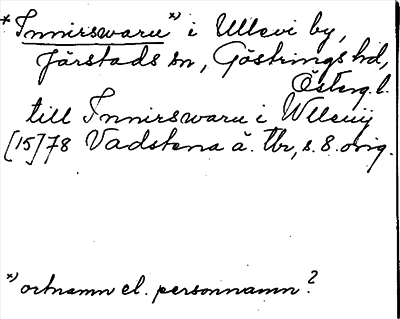 *Innirswaru *) i Ullevi by,
Järstads sn, Göstrings hd,
Österg. l.
till Innirswaru i Wlleuij
[15]78 Vadstena ä. tbr, s. 8. orig.
*) ortnamn el. personnamn?